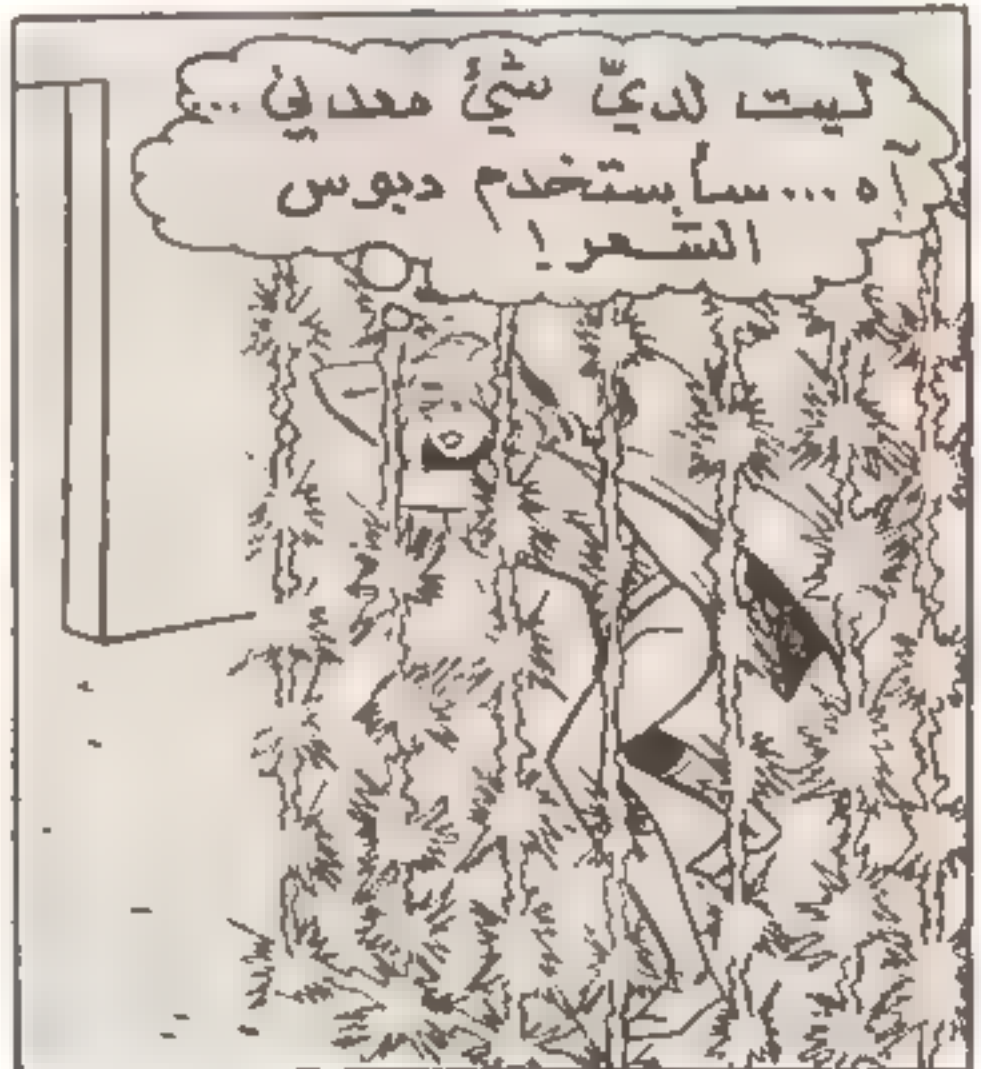 ليت لديّ شيئ معدني ...
آه ... سأستخدم دبوس
الشعر !